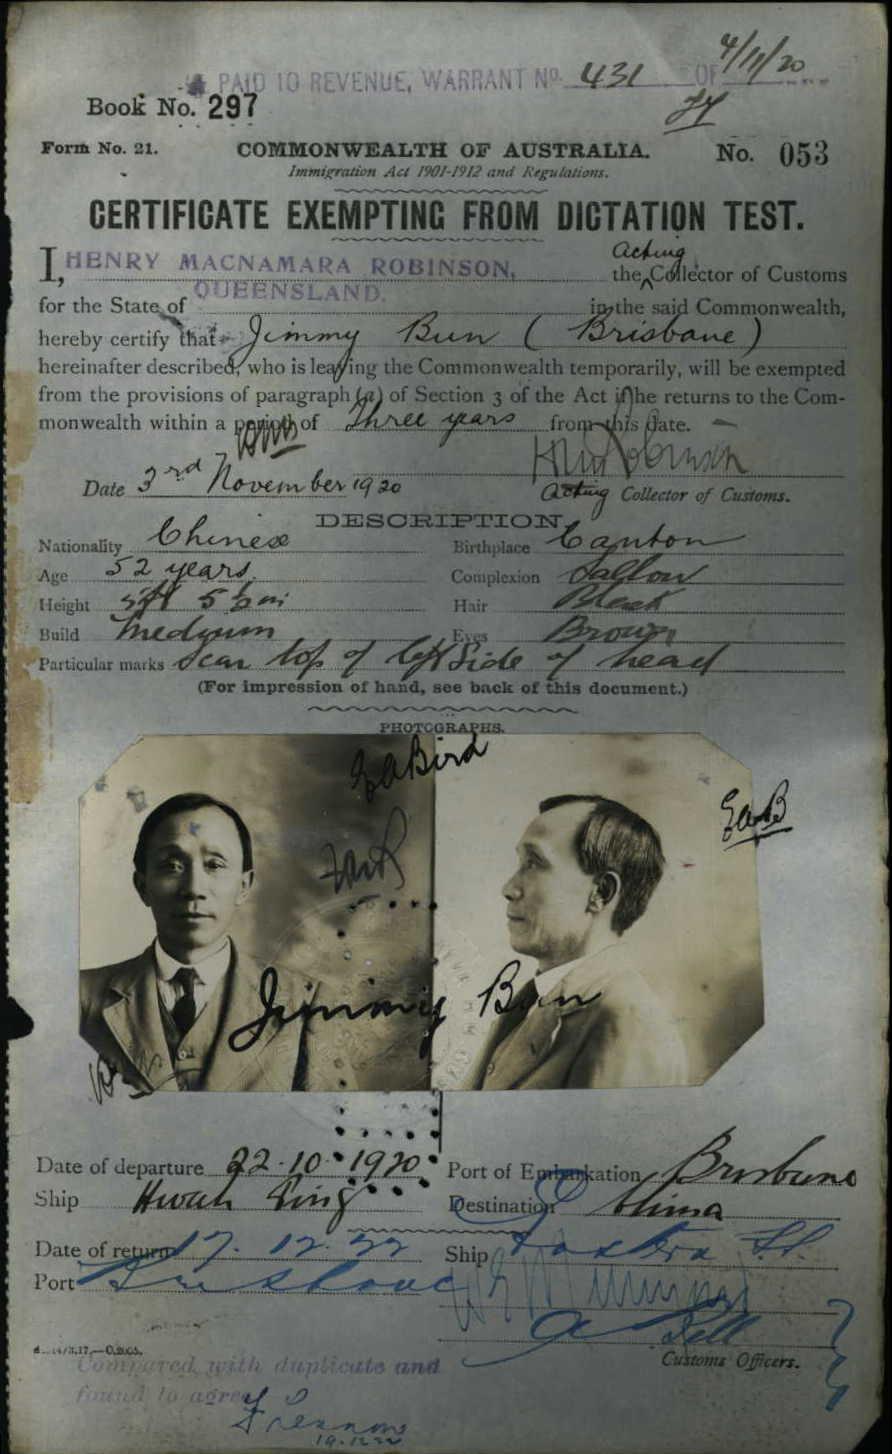 PAID TO REVENUE, WARRANT No. 431 OF 4/11/20
Book No. 297
Form No. 21. COMMONWEALTH OF AUSTRALIA. No. 053
Immigration Act 1901-1912 and Regulations.
CERTIFICATE EXEMPTING FROM DICTATION TEST.
I, HENRY MACNAMARA ROBINSON, the Acting Collector of Customs
for the State of QUEENSLAND. in the said Commonwealth,
hereby certify that Jimmy Bun (Brisbane)
hereinafter described, who is leaving the Commonwealth temporarily, will be exempted
from the provisions of paragraph (a) of Section 3 of the Act if he returns to the Com-
monwealth within a period of Three years from this date.
Date 3rd November 1920 Acting Collector of Customs.
DESCRIPTION.
Nationality Chinese Birthplace Canton
Age 52 years Complexion Sallow
Height 5ft 5½ in Hair Black
Build Medium Eyes Brown
Particular marks Scar top of left Side of head
(For impression of hand, see back of this document.)
PHOTOGRAPHS.
EABird
EAB
HMR
Jimmy Bun
Date of departure 22.10.1920 Port of Embarkation Brisbane
Ship Hwah Ping Destination China
Date of return 17.12.22 Ship Eastern
Port Brisbane
Customs Officers.
Compared with duplicate and
found to agree
19.12.22